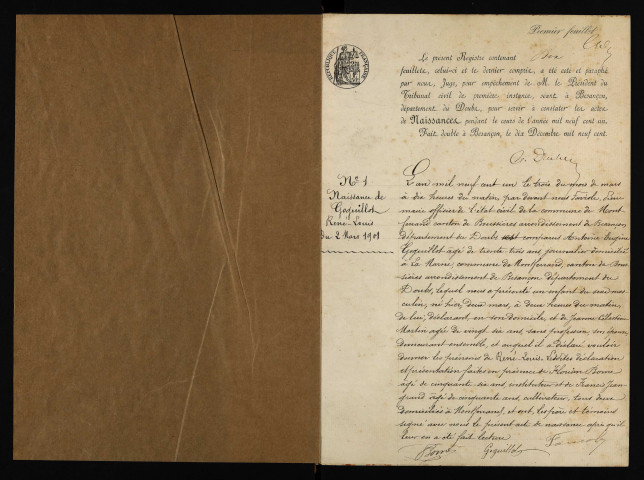 Premier feuillet
Le présent Registre contenant six
feuillets, celui-ci et le dernier compris, a été coté et paraphé
par nous, Juge, pour empêchement de M. le Président du
Tribunal civil de première instance, séant à Besançon,
département du Doubs, pour servir à constater les actes
de Naissances pendant le cours de l'année mil neuf cent un.
Fait double à Besançon, le dix Décembre mil neuf cent.
N° 1
Naissance de
Goguillot
René-Louis
du 2 Mars 1901
L'an mil neuf cent un le trois du mois de mars
à dix heures du matin, par devant nous
maire officier de l'état civil de la commune de Mont-
ferrand canton de Boussières arrondissement de Besançon
département du Doubs est comparu Antoine Eugène
Goguillot âgé de trente trois ans, journalier domicilié
à la Marne, commune de Montferrand, canton de Bous-
sières arrondissement de Besançon département du
Doubs, lequel nous a présenté un enfant du sexe mas-
culin, né hier, deux mars, à deux heures du matin,
de lui, déclarant, en son domicile, et de Jeanne Célestine
Martin agée de vingt six ans, sans profession, son épouse
demeurant ensemble, et auquel il a déclaré vouloir
donner les prénoms de René Louis. Lesdites déclaration
et présentation faites en présence de
âgé de cinquante six ans, instituteur et de Francis Jean-
grand âgé de cinquante ans, cultivateur, tous deux
domiciliés à Montferrand, et ont, les père et témoins
signé avec nous le présent acte de naissance après qu'il
leur en a été fait lecture.
Goguillot